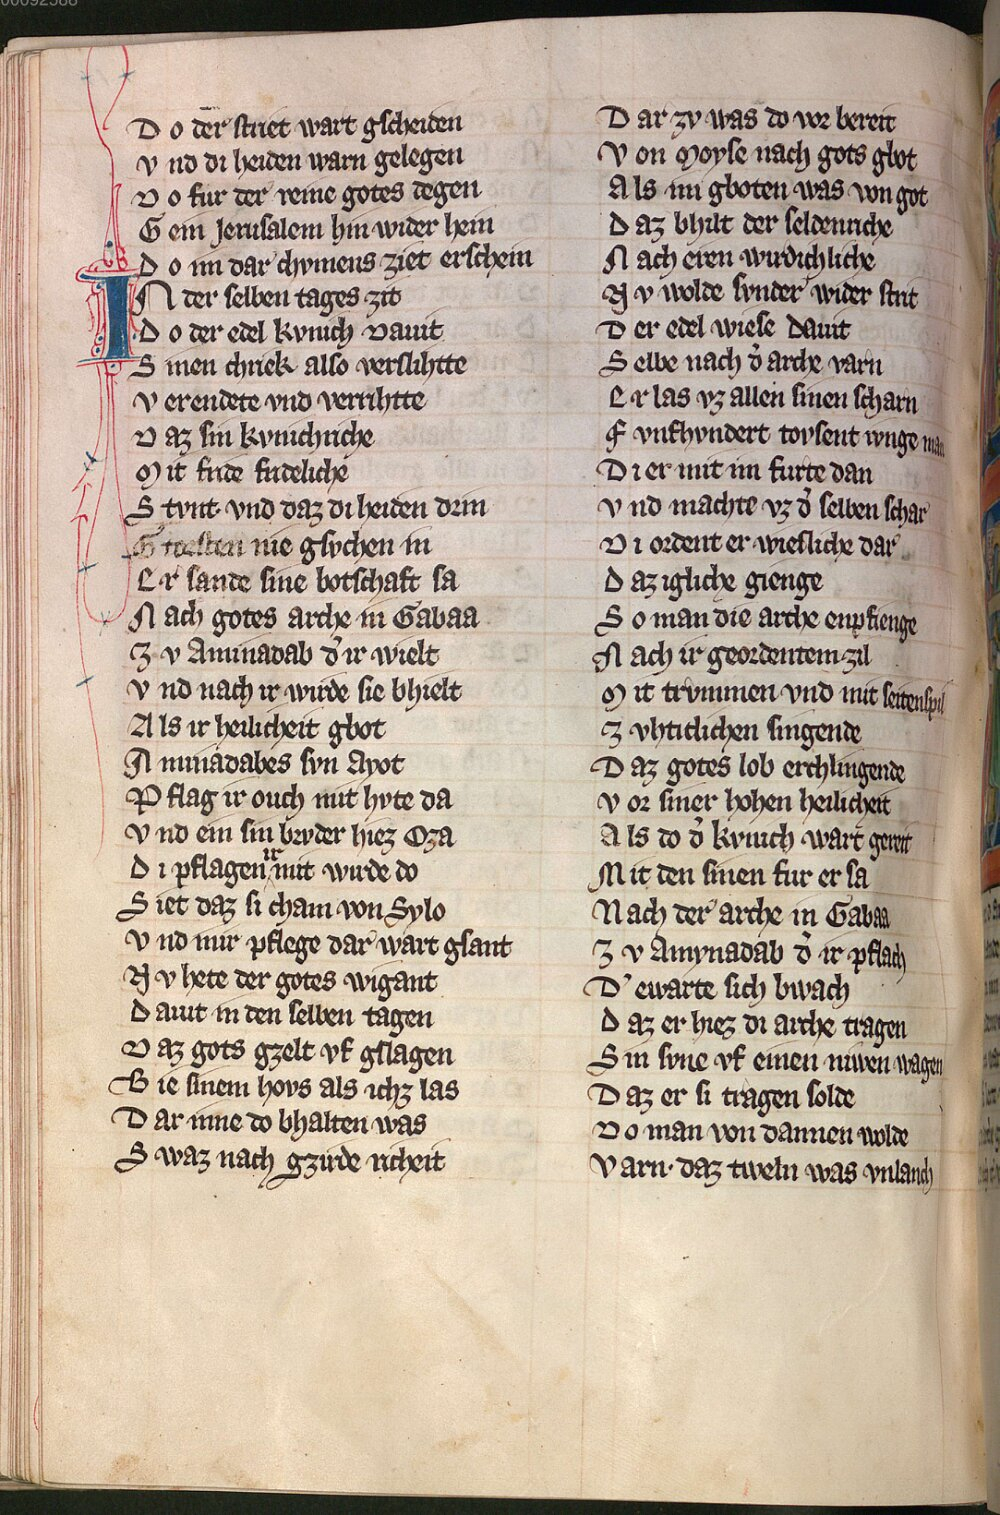 00092588
Do der striet wart gscheiden
Vnd di heiden warn gelegen
Do fur der reine gotes degen
Gein Jerusalem hin wider hein
Do im dar chvmens ziet erschein
IN der selben tages zit
Do der edel kvnich Dauit
Sinen chriek also verslihtte
Verendete vnd verrihtte
Daz sin kvnichriche
Mit fride frideliche
Stvnt· vnd daz di heiden drin
nie gsvchen in
Er sande sine botschaft sa
Nach gotes arche in Gabaa
Zv Aminadab d̾ ir wielt
Vnd nach ir wirde sie bhielt
Als ir heilicheit gbot
Aminadabes svn Ayot
Pflag ir ouch mit hvte da
Vnd ein sin brvder hiez Oza
Di pflagen ir mit wirde do
Siet daz si cham von Sylo
Vnd mir pflege dar wart gsant
Nv hete der gotes wigant
Dauit in den selben tagen
Daz gots gzelt vf gslagen
Bie sinem hovs als ichz las
Dar inne do bhalten was
Swaz nach gzirde richeit
Dar zv was do vor bereit
Von Moyse nach gots gbot
Als im gboten was von got
Daz bhilt der seldenriche
Nach eren wirdichliche
Nv wolde svnder wider strit
Der edel wiese Dauit
Selbe nach d̾ arche varn
Er las vz allen sinen scharn
Fvnfhvndert tovsent ivnge man
Di er mit im furte dan
Vnd machte vz d̾ selben schar
Di ordent er wiesliche dar
Daz igliche gienge
So man die arche enpfienge
Nach ir geordentem zil
Mit trvmmen vnd mit seitenspil
Zvhtichlichen singende
Daz gotes lob erchlingende
Vor siner hohen heilicheit
Als do d̾ kvnich wart gereit
Mit den sinen fur er sa
Nach der arche in Gabaa
Zv Amynadab d̾ ir pflach
D̾ ewarte sich bwach
Daz er hiez di arche tragen
Sin svne vf einen niwen wagen
Daz er si tragen solde
Do man von dannen wolde
Varn· daz tweln was vnlanch